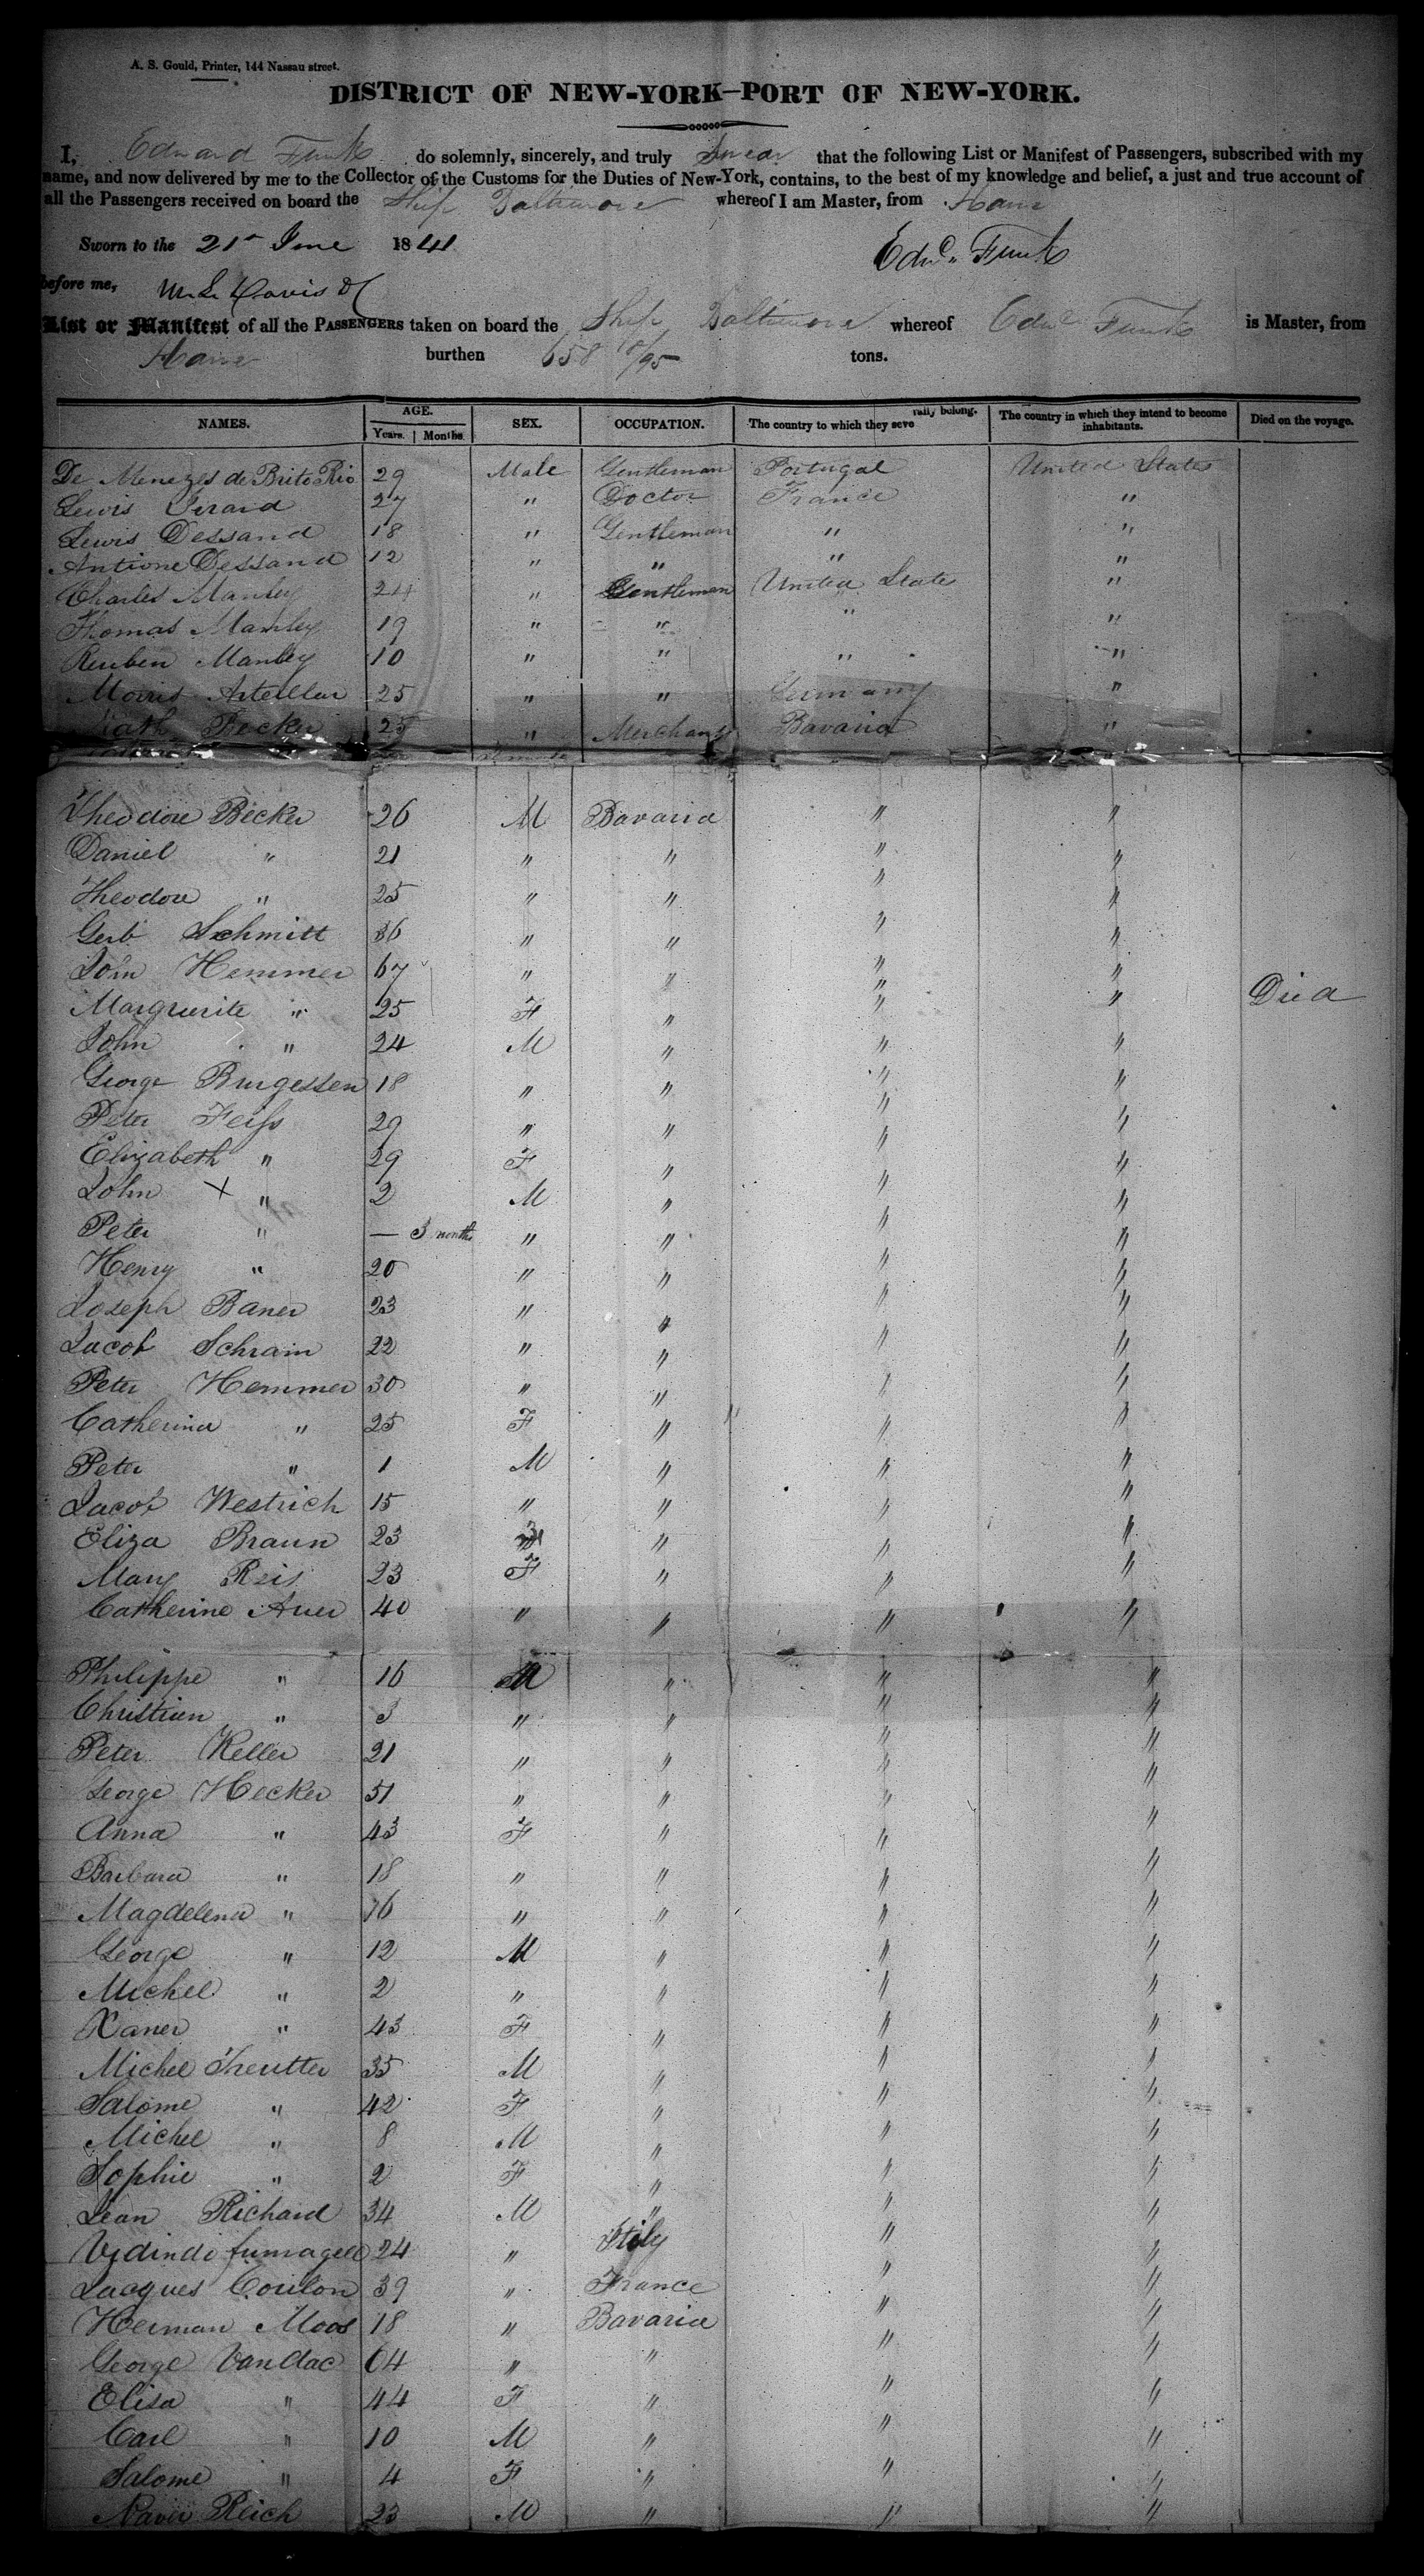 A. S. Gould, Printer, 144 Nassau street.
DISTRICT OF NEW-YORK—PORT OF NEW-YORK.
I, Edward Funk do solemnly, sincerely, and truly Swear that the following List or Manifest of Passengers, subscribed with my
name, and now delivered by me to the Collector of the Customs for the Duties of New-York, contains, to the best of my knowledge and belief, a just and true account of
all the Passengers received on board the Ship Baltimore whereof I am Master, from Havre
Sworn to the 21st June 1841 Edwd. Funk
before me, Davis
List or Manifest of all the PASSENGERS taken on board the Ship Baltimore whereof Edwd Funk is Master, from
Havre burthen 658 /95 tons.
NAMES. AGE. Years. Months. SEX. OCCUPATION. The country to which they seve rally belong. The country in which they intend to become inhabitants. Died on the voyage.
De Menezes de Brito Rio 29 Male Gentleman Portugal United States
Lewis 27 " Doctor France "
Lewis Dessand 18 " Gentleman " "
Antione Dessand 12 " " " "
Charles Manley 24 " Gentleman United State "
Thomas Manley 19 " " " "
Reuben Manley 10 " " " "
Morris 25 " " Germany "
Becker 25 " Merchant Bavaria "
Theodore Becker 26 M Bavaria " "
Daniel " 21 " " " "
Theodore " 25 " " " "
Gerb Schmitt 36 " " " "
John Hemmer 67 " " " "
Marguerite " 25 F " " " Died
John " 24 M " " "
George Burgessen 18 " " " "
Peter Feifs 29 " " " "
Elizabeth " 29 F " " "
John X " 2 M " " "
Peter " — 3 months " " " "
Henry " 20 " " " "
Joseph Baner 23 " " " "
Jacob Schram 22 " " " "
Peter Hemmer 30 " " " "
Catherina " 25 F " " "
Peter " 1 M " " "
Jacob Westrich 15 " " " "
Eliza Braun 23 " " "
Mary Reis 23 F " " "
Catherine Auer 40 " " " "
Philippe " 16 M " " "
Christien " 3 " " " "
Peter Keller 21 " " " "
George Hecker 51 " " " "
Anna " 43 F " " "
Barbara " 18 " " " "
Magdelena " 16 " " " "
George " 12 M " " "
Michel " 2 " " " "
Xaner " 43 F " " "
Michel Treutter 35 M " " "
Salome " 42 F " " "
Michel " 8 M " " "
Sophie " 2 F " " "
Jean Richard 34 M " " "
fumagell 24 " Itily " "
Jacques Coulon 39 " France " "
Herman Moos 18 " Bavaria " "
George Vandac 64 " " " "
Elisa " 44 F " " "
Carl " 10 M " " "
Salome " 4 F " " "
Xavir Reich 23 M " " "